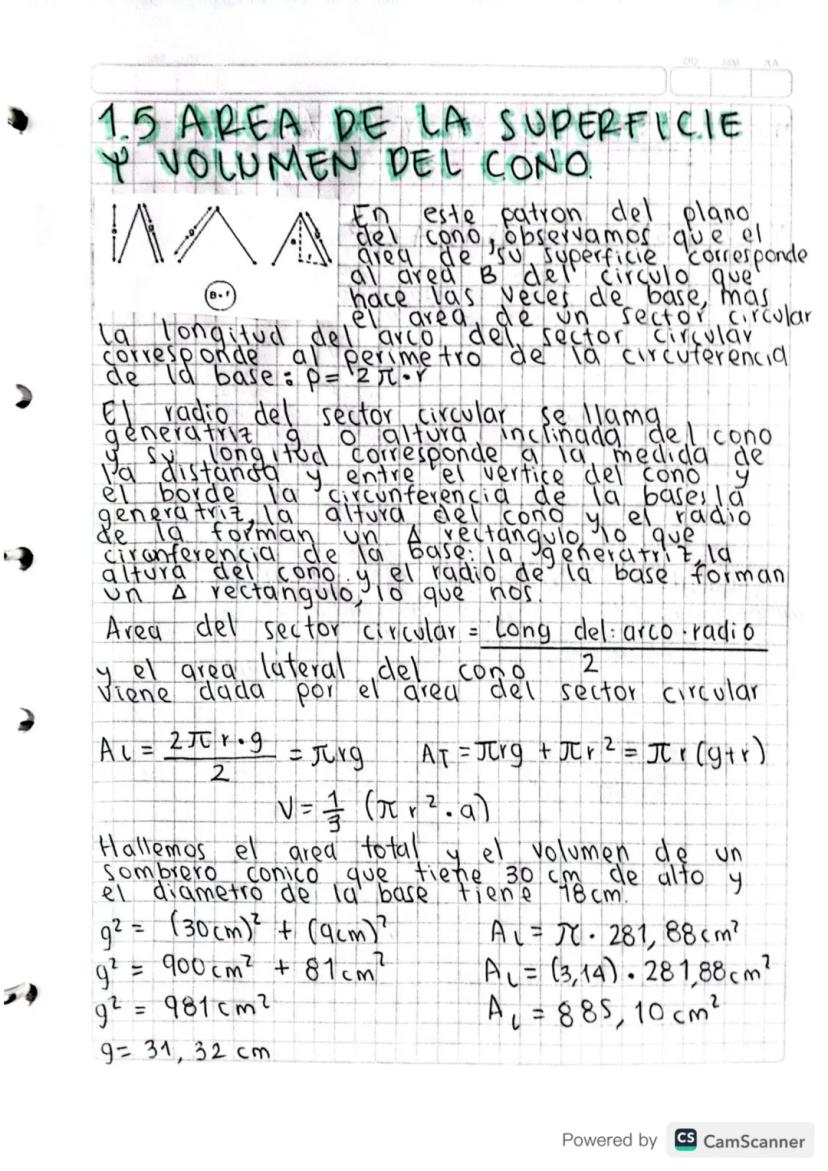 1.5 AREA DE LA SUPERFICIE
Y VOLUMEN DEL CONO.
En este patron del plano
del cono, observamos que el
area de su superficie corresponde
al area B del circulo que
hace las veces de base, mas
el area de un sector circular
B · r
la longitud del arco del sector circular
corresponde al perimetro de la circuferencia
de la base: p= 2π·r
El radio del sector circular se llama
generatriz g o altura inclinada del cono
y su longitud corresponde a la medida de
la distancia y entre el vertice del cono y
el borde la circunferencia de la bases la
generatriz, la altura del cono y el radio
de la forman un Δ rectangulo, lo que
ciranferencia de la base: la generatriz, la
altura del cono y el radio de la base forman
un Δ rectangulo, lo que nos.
Area del sector circular = Long del: arco · radio / 2
y el area lateral del cono
viene dada por el area del sector circular
AL = 2πr·g / 2 = πrg AT = πrg + πr² = πr(g+r)
V = 1/3 (πr²·a)
Hallemos el area total y el volumen de un
sombrero conico que tiene 30 cm de alto y
el diametro de la base tiene 18cm.
g² = (30cm)² + (9cm)² AL = π · 281,88cm²
g² = 900cm² + 81cm² AL = (3,14) · 281,88cm²
g² = 981cm² AL = 885,10cm²
g= 31,32 cm
Powered by CS CamScanner